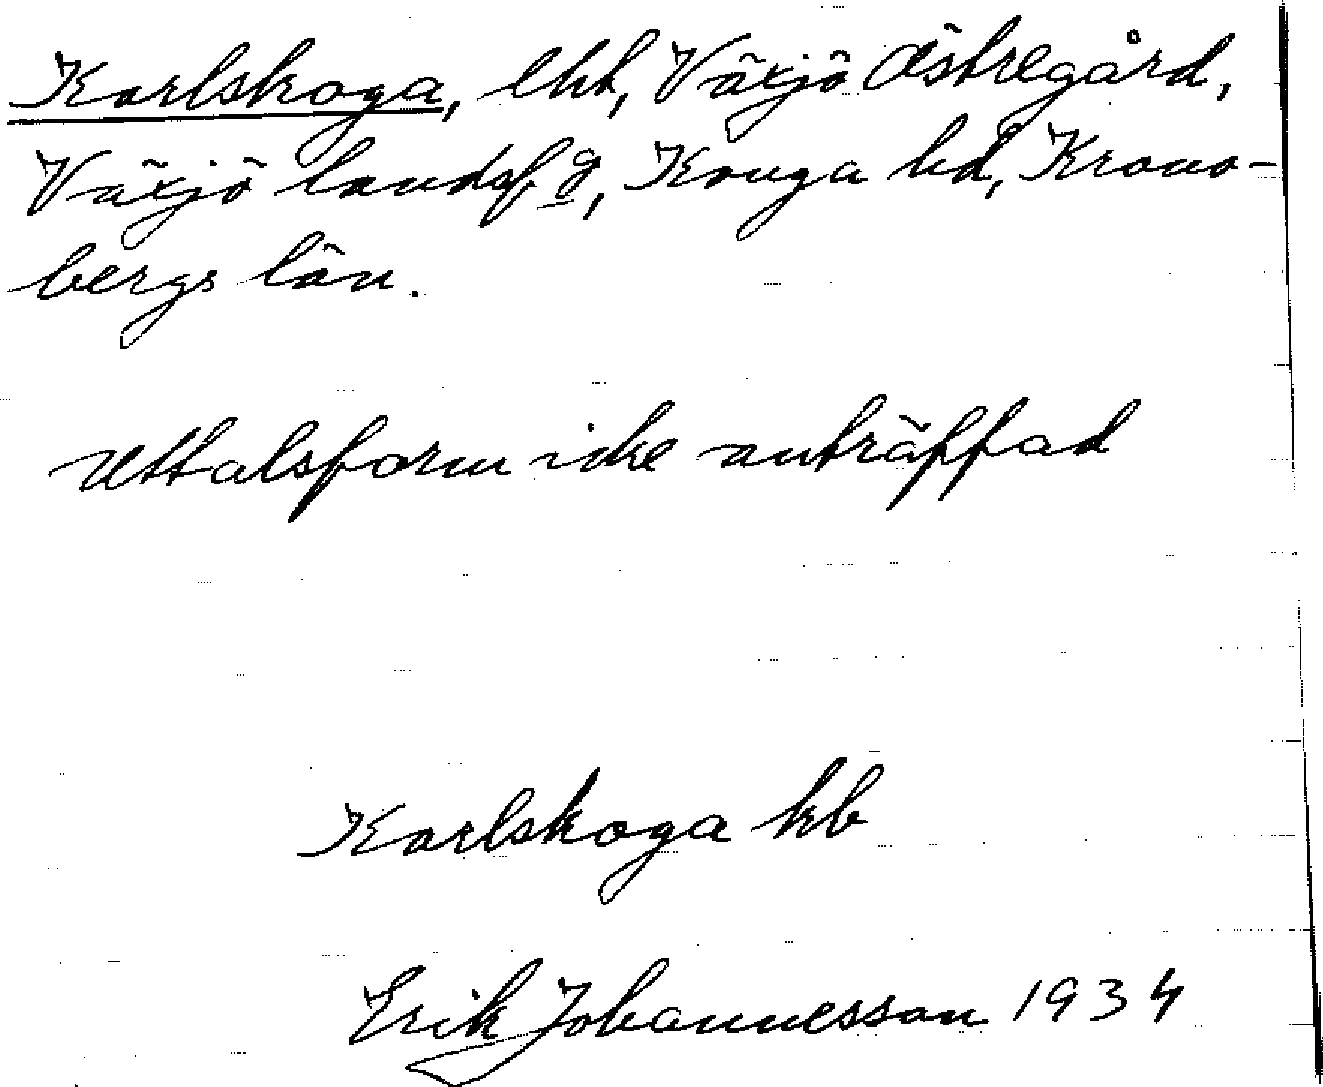 Karlskoga, lht, Växjö Östregård,
Växjö landsf. g, Konga hd, Krono-
bergs län.
Uttalsform icke anträffad
Karlskoga kb
Erik Johannesson 1934